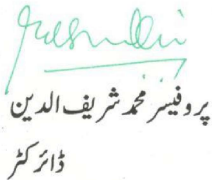 پروفیسر محمد شریف الدین
ڈائرکٹر